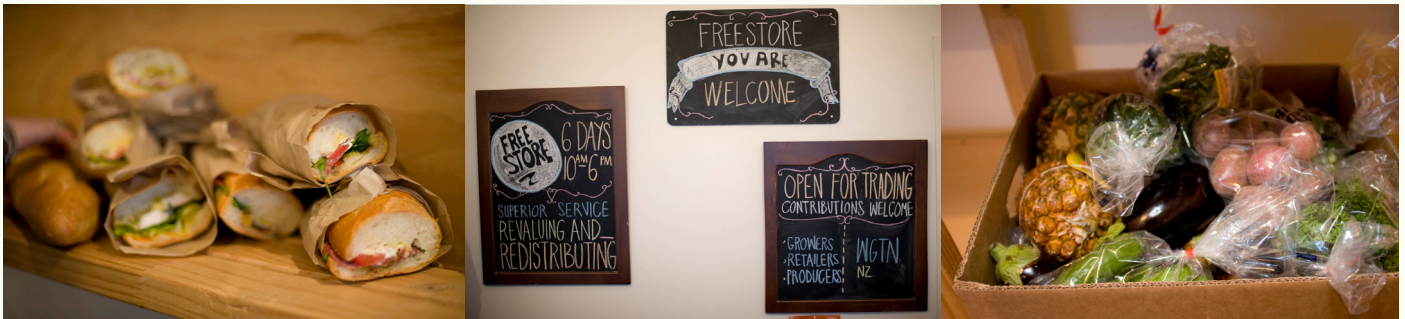 FREESTORE
YOU ARE
WELCOME
FREE
STORE
NZ
6 DAYS
10AM-6PM
SUPERIOR SERVICE
REVALUING AND
REDISTRIBUTING
OPEN FOR TRADING
CONTRIBUTIONS WELCOME
·GROWERS
·RETAILERS
·PRODUCERS
WGTN
NZ.